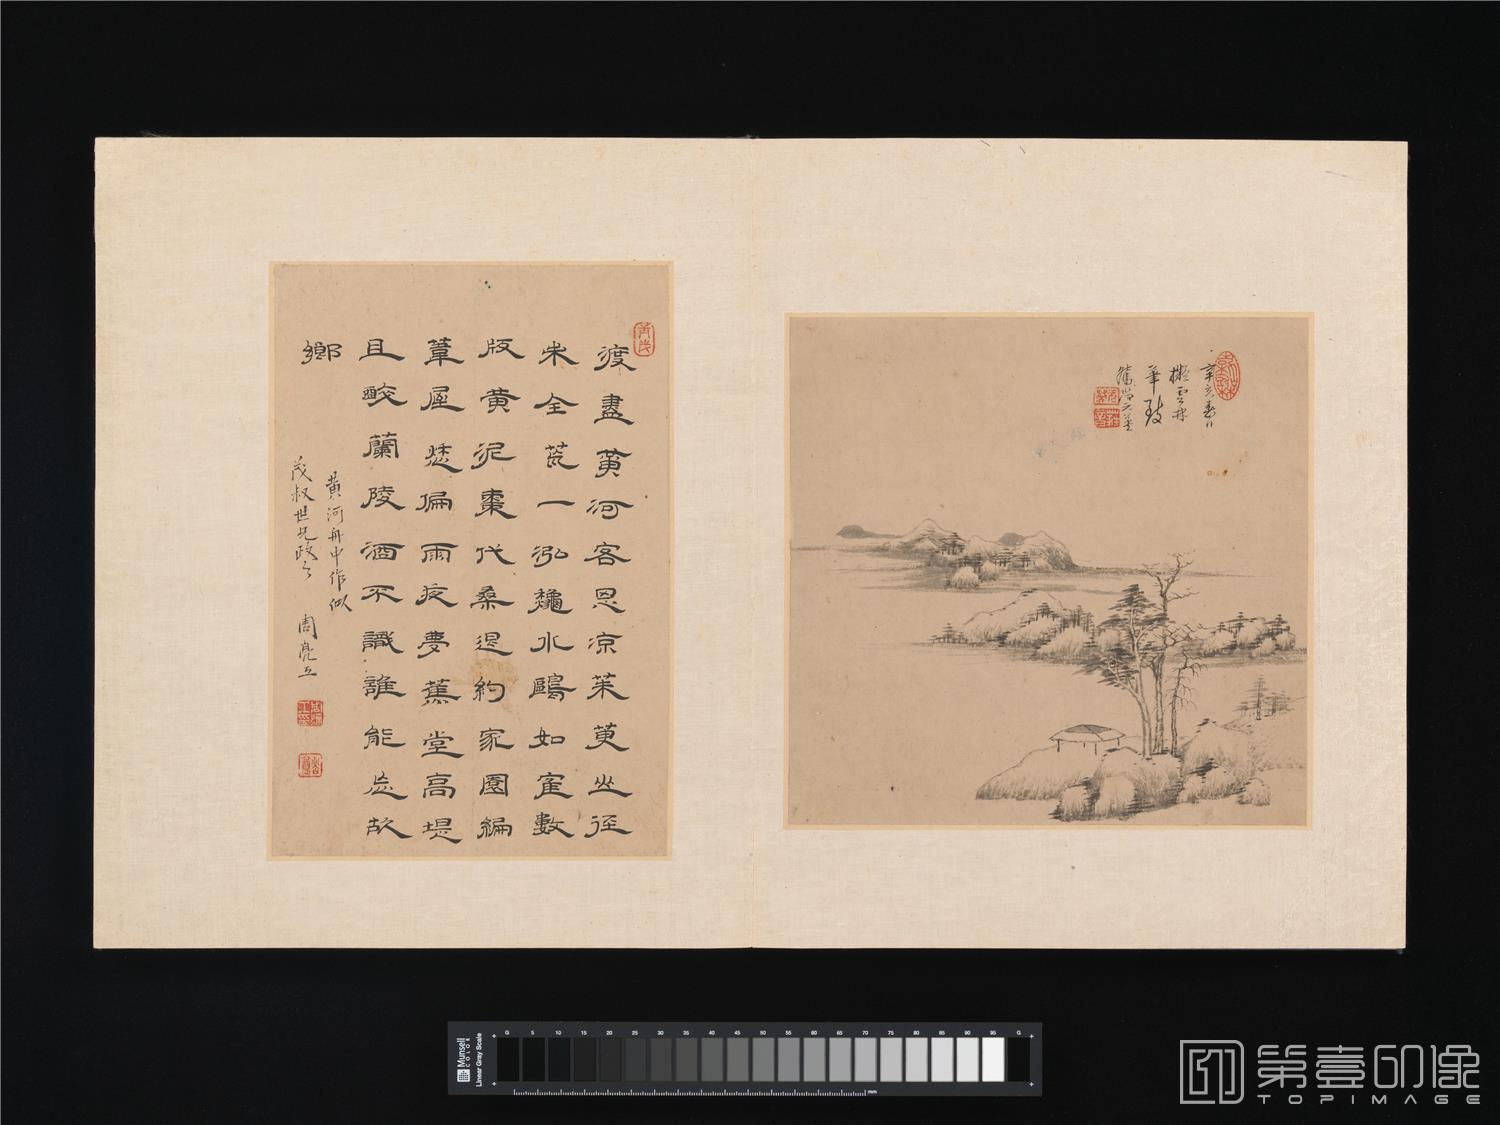 辛亥春日
擬雲林
筆致
渡盡黃河客思涼茱萸坐徑
未全荒一泓龝水鷗如宿數
版黃泥棗代桑退約家園編
葦屋愁偏雨夜夢蕉堂高堤
且醉蘭陵酒不識誰能忘故
鄉
黃河舟中作似
茂叔世兄政之
周亮工
Munsell
COLOR
Linear Gray Scale
G 5 10 15 20 25 30 35 40 45 50 55 60 65 70 75 80 85 90 95 G
mm
第壹印像
TOPIMAGE